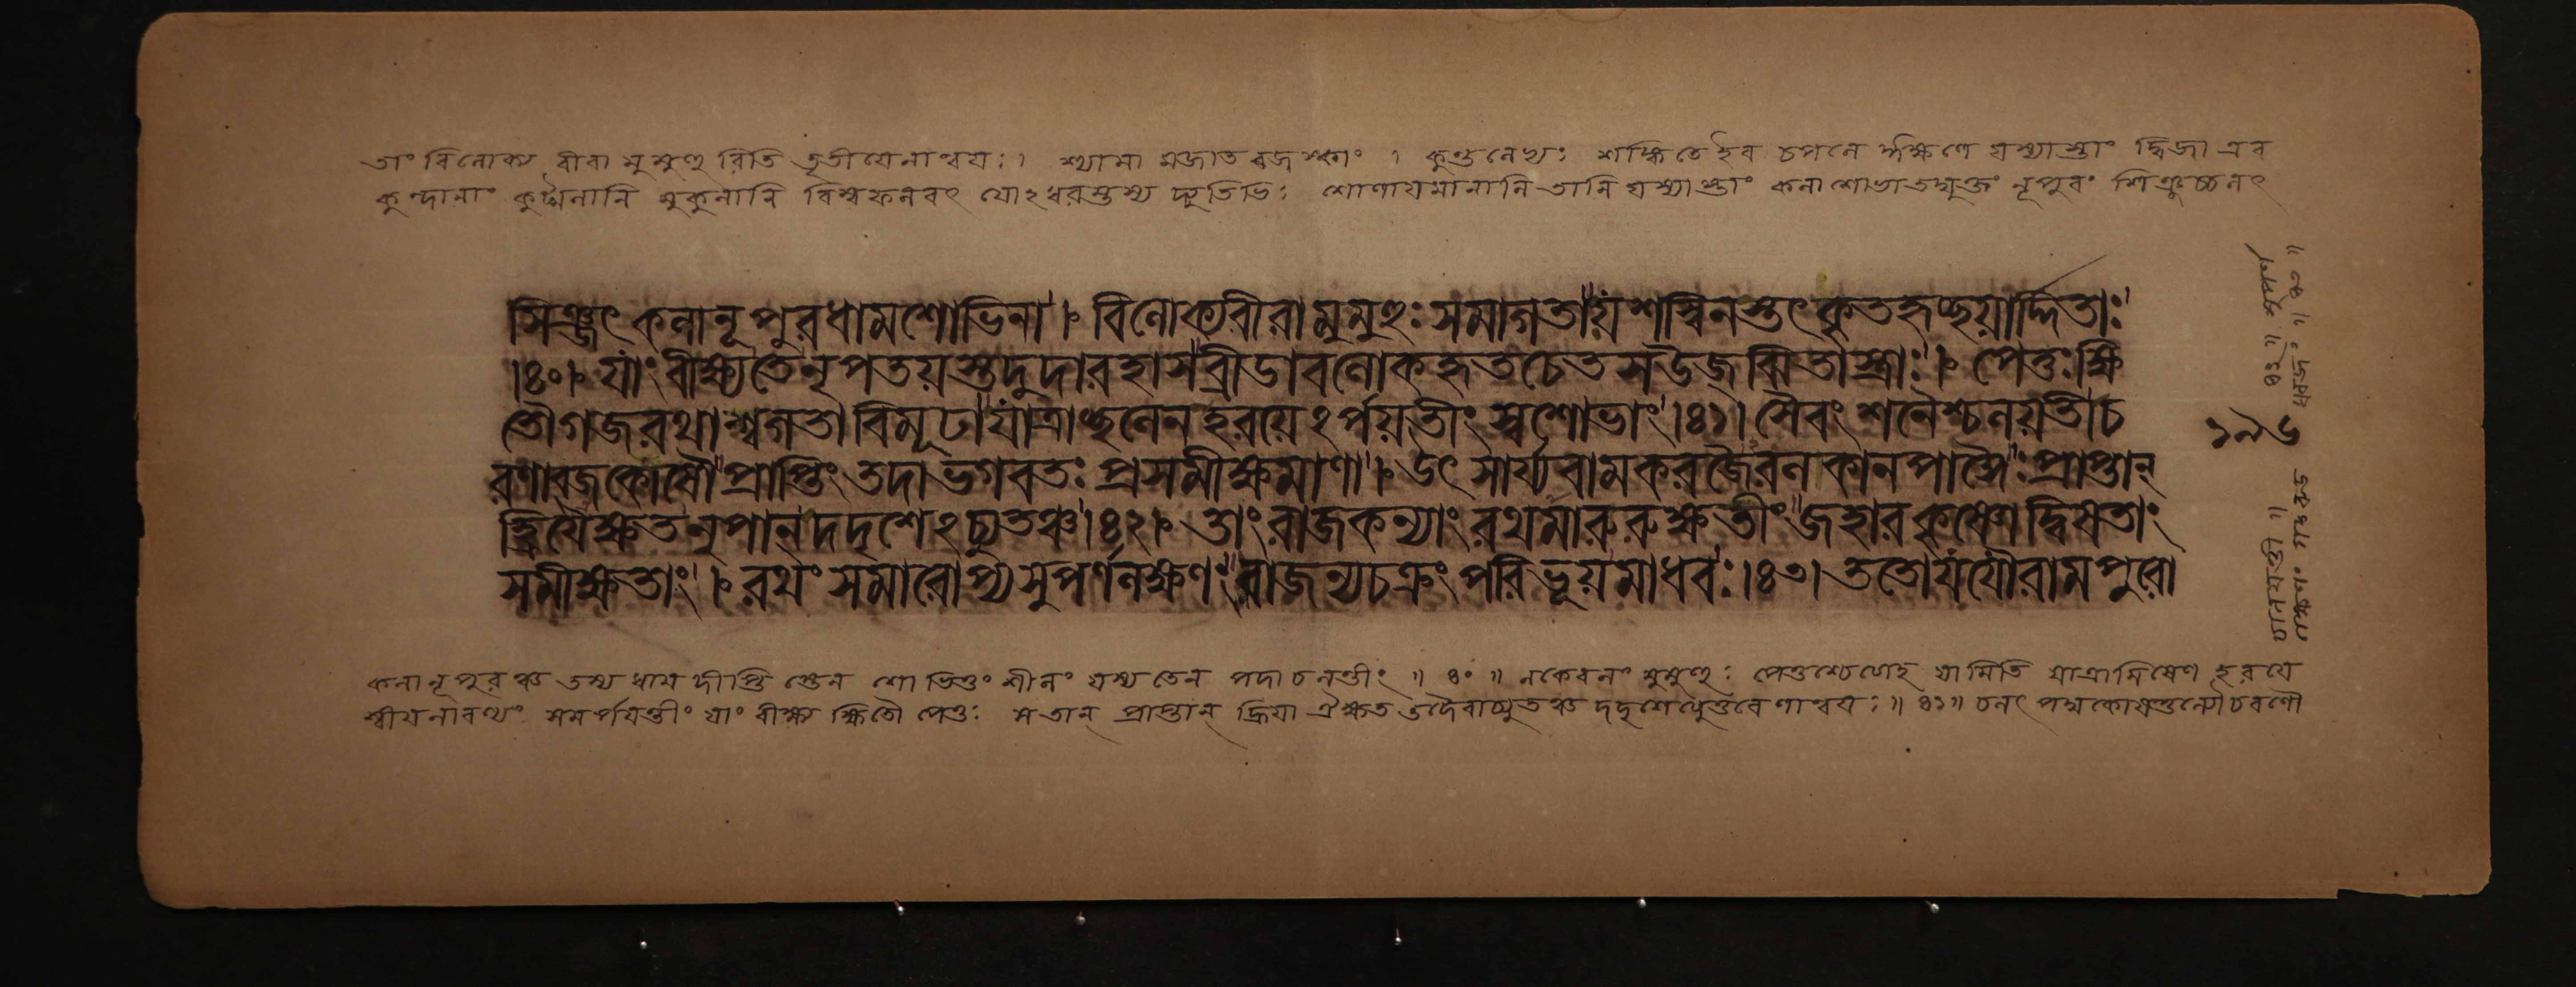 তাং বিলোক্য বীরা মুমুহু রিতি তৃতীয়েনান্বয়ঃ। শ্যামা মজাত রজস্কাং । কুণ্ডলেত্যঃ শঙ্কিতে ইব চপলে ঈক্ষণে যস্যাস্তাং দ্বিজা এব
কুন্দানাং কুট্মলানি মুকুলানি বিম্বফলবৎ যোঽধরস্তস্য দ্যুতিভিঃ শোণায়মানানি তানি যস্যাস্তাং কলা শোভা তদ্যুক্তং নূপুরং শিঞ্জচ্চলৎ
সিঞ্জৎ কলানূপুরধামশোভিনা। বিলোক্যবীরামুমুহুঃসমাগতায়শস্বিনস্তৎকৃতহৃচ্ছয়ার্দ্দিতাঃ
।৪০। যাং বীক্ষ্যতেনৃপতয়স্তদুদারহাসব্রীডাবলোকহৃতচেতসউজ্ঝিতাস্ত্রাঃ। পেতুঃক্ষি
তৌগজরথাশ্বগতাবিমূঢাযাত্রাচ্ছলেনহরয়েঽর্পয়তীং স্বশোভাং।৪১। সৈবং শনৈশ্চলয়তীচ
রণাব্জকোষৌপ্রাপ্তিং তদাভগবতঃ প্রসমীক্ষমাণা। উৎসার্য্যবামকরজৈরলকানপাঙ্গৈঃ প্রাপ্তান্
হ্রিয়ৈক্ষতনৃপান্ দদৃশেঽচ্যুতঞ্চ।৪২। তাং রাজকন্যাং রথমারুরুক্ষতীং জহারকৃষ্ণোদ্বিষতাং
সমীক্ষতাং। রথং সমারোপ্যসুপর্ণলক্ষণং রাজন্যচক্রং পরিভূয়মাধবঃ।৪৩। ততোযযৌরামপুরো
কলানূপুরঞ্চ তস্য ধাম দীপ্তি স্তেন শোভিতুং শীলং যস্য তেন পদা চলন্তীং ॥ ৪০ ॥ নকেবলং মুমুহুঃ পেতুশ্চেত্যাহ যামিতি যাত্রামিষেণ হরয়ে
স্বীয়লাবণ্যং সমর্পয়ন্তীং যাং বীক্ষ্য ক্ষিতৌ পেতুঃ সতান্ প্রাপ্তান্ হ্রিয়া ঐক্ষত তদৈবাচ্যুতঞ্চ দদৃশে ॥ ৪১॥ চলৎ পদ্মকোষতুল্যৌ চরণৌ
১৯৬
চালয়ন্তী ॥ ৪২॥ সুপর্ণ
লক্ষণং গরুড ধ্বজং ॥ ৪৩ ॥